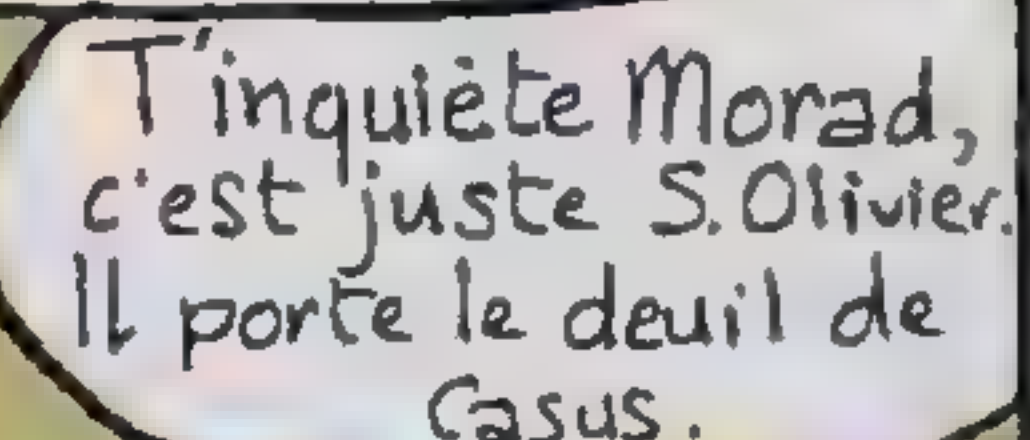 T'inquiète Morad,
c'est juste S. Olivier.
Il porte le deuil de
Casus.